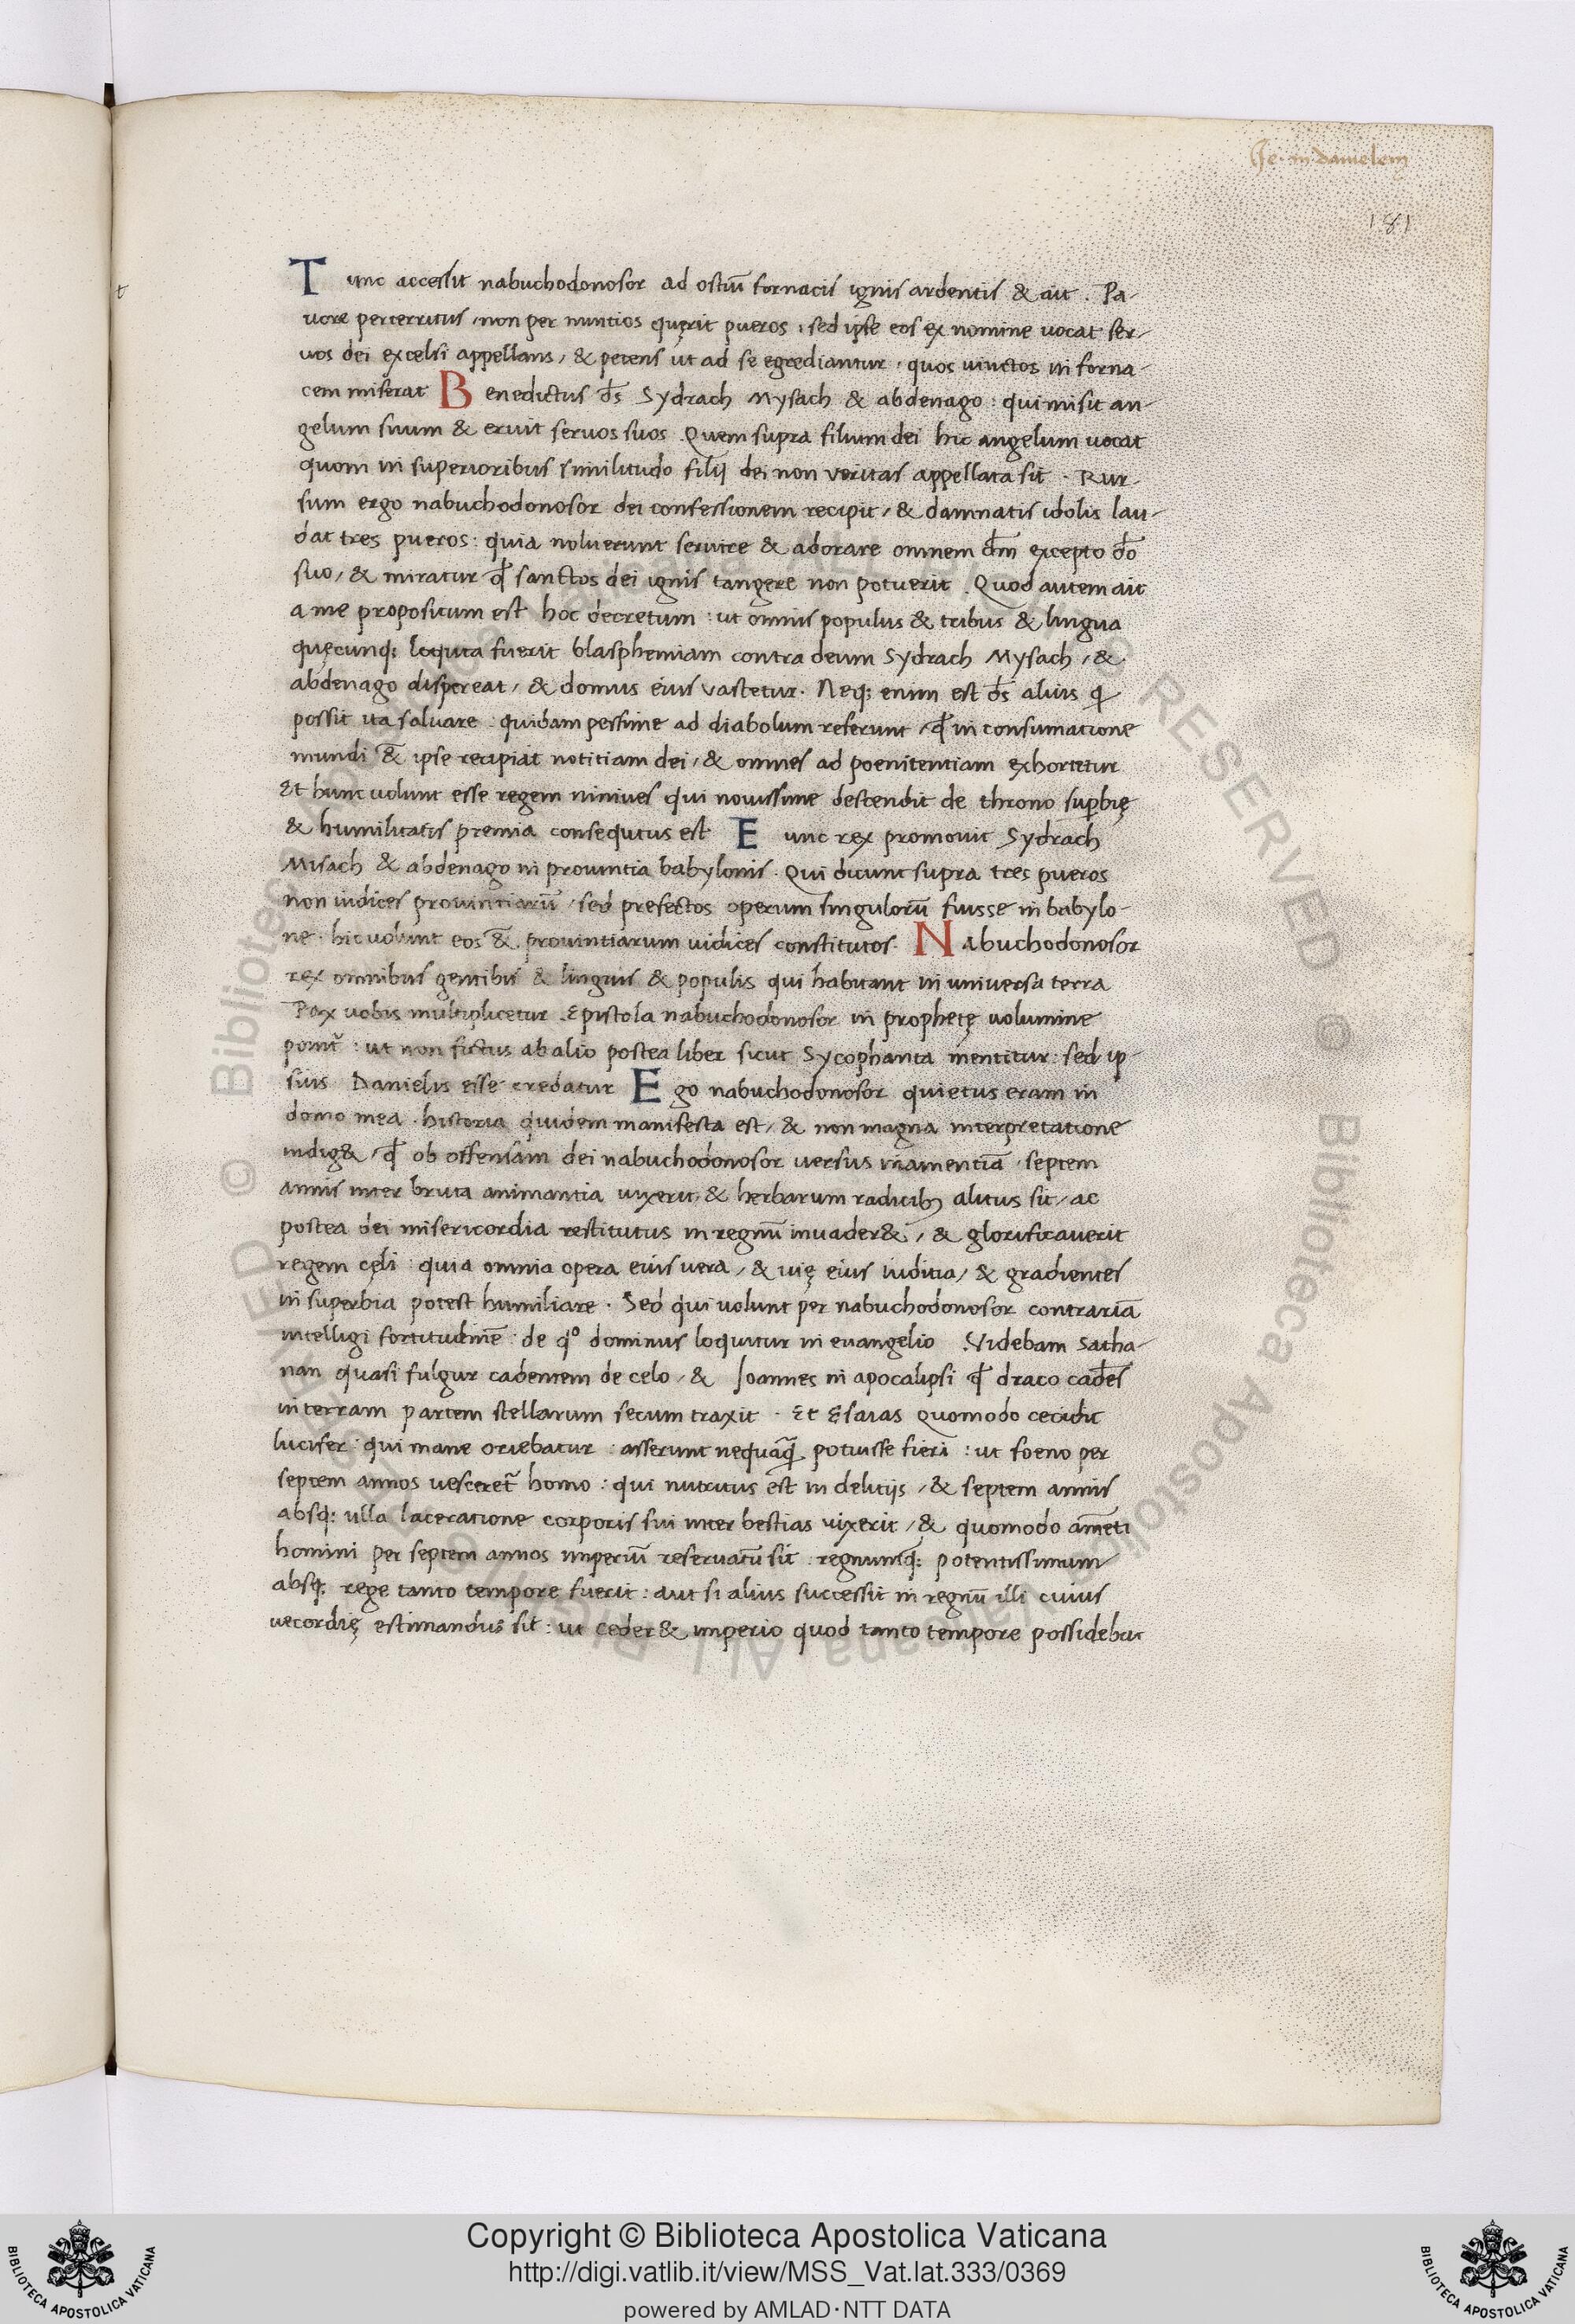 Je. in danielem
181
Tunc accessit nabuchodonosor ad ostiū fornacis ignis ardentis & ait . Pa-
uore perterritus , non per nuntios quęrit pueros : sed ipse eos ex nomine uocat ser-
uos dei excelsi appellans , & petens ut ad se egrediantur . quos uinctos in forna-
cem miserat Benedictus d̄s Sydrach Mysach & abdenago : qui misit an-
gelum suum & eruit seruos suos . Quem supra filium dei hic angelum uocat
quom in superioribus similitudo filij dei non veritas appellata sit . Rur-
sum ergo nabuchodonosor dei confessionem recipit , & damnatis idolis lau-
dat tres pueros : quia noluerunt seruire & adorare omnem d̄m excepto d̄o
suo , & miratur qđ sanctos dei ignis tangere non potuerit . Quod autem ait
a me propositum est hoc decretum : ut omnis populus & tribus & lingua
quęcunq; loquta fuerit blasphemiam contra deum Sydrach Mysach , &
abdenago dispereat , & domus eius vastetur . Neq; enim est d̄s alius q
possit ita saluare : quidam pessime ad diabolum referunt , qđ in consumatione
mundi &̄ ipse recipiat notitiam dei , & omnes ad poenitentiam exhortetur
Et hunc uolunt esse regem niniues qui nouissime descendit de throno superbię
& humilitatis premia consequtus est Eunc rex promouit Sydrach
Misach & abdenago in prouintia babylonis . Qui dicunt supra tres pueros
non iudices prouintiarū , sed prefectos operum singulorū fuisse in babylo-
ne . hic uolunt eos &̄ prouintiarum iudices constitutos . Nabuchodonosor
rex omnibus gentibus & linguis & populis qui habitant in universa terra
Pax uobis multiplicetur . Epistola nabuchodonosor in prophetę uolumine
ponit̃ : ut non fictus ab alio postea liber sicut Sycophanta mentitur : sed ip-
sius Danielis esse credatur Ego nabuchodonosor quietus eram in
domo mea . historia quidem manifesta est , & non magna interpretatione
indig& , qđ ob offensam dei nabuchodonosor uersus in amentiā . septem
annis inter bruta animantia uixerit & herbarum radicibȝ alitus sit , ac
postea dei misericordia restitutus in regnū inuader& , & glorificauerit
regem cęli : quia omnia opera eius uera , & uię eius iuditia , & gradientes
in superbia potest humiliare . Sed qui uolunt per nabuchodonosor contrariā
intelligi fortitudinē : de qº dominus loquitur in euangelio . Videbam Satha-
nan quasi fulgur cadentem de celo , & Joannes in apocalipsi qđ draco cadēs
in terram partem stellarum secum traxit . Et Esaias Quomodo cecidit
lucifer qui mane oriebatur : asserunt nequaq̄ potuisse fieri : ut foeno per
septem annos uesceret̃ homo : qui nutritus est in delitijs , & septem annis
absq; ulla laceratione corporis sui inter bestias uixerit , & quomodo amēti
homini per septem annos imperiū reseruatū sit . regnumq; potentissimum
absq; rege tanto tempore fuerit : aut si alius successit in regnū illi cuius
uecordię estimandus sit : ut ceder& imperio quod tanto tempore possidebat
Copyright © Biblioteca Apostolica Vaticana
http://digi.vatlib.it/view/MSS_Vat.lat.333/0369
powered by AMLAD·NTT DATA